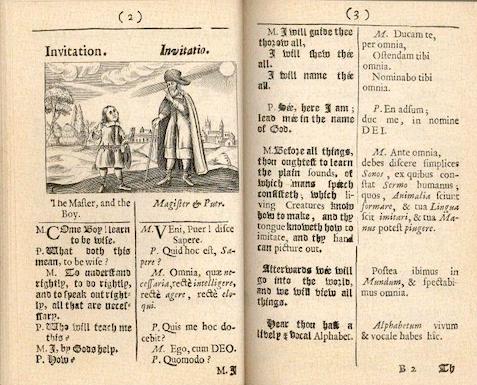 (2)
Invitation.
Invitatio.
The Master, and the
Boy.
M. COme Boy! learn
to be wise.
P. What doth this
mean, to be wise?
M. To understand
rightly, to do rightly,
and to speak out right-
ly, all that are neces-
sary.
P. Who will teach me
this?
M. I, by Gods help.
P. How?
Magister & Puer.
M. VEni, Puer! disce
Sapere.
P. Quid hoc est, Sa-
pere?
M. Omnia, quæ ne-
cessaria, rectè intelligere,
rectè agere, rectè elo-
qui.
P. Quis me hoc do-
cebit?
M. Ego, cum DEO.
P. Quomodo?
M. I
(3)
M. I will guide thee
thorow all,
I will shew thee
all.
I will name thee
all.
P. See, here I am;
lead me in the name
of God.
M. Before all things,
thou oughtest to learn
the plain sounds, of
which mans speech
consisteth; which li-
ving Creatures know
how to make, and thy
tongue knoweth how to
imitate, and thy hand
can picture out.
Afterwards we will
go into the world,
and we will view all
things.
Hear thou hast a
lively & vocal Alphabet.
M. Ducam te,
per omnia,
Ostendam tibi
omnia.
Nominabo tibi
omnia.
P. En adsum;
duc me, in nomine
DEI.
M. Ante omnia,
debes discere simplices
Sonos, ex quibus con-
stat Sermo humanus;
quos, Animalia sciunt
formare, & tua Lingua
scit imitari, & tua Ma-
nus potest pingere.
Postea ibimus in
Mundum, & spectabi-
mus omnia.
Alphabetum vivum
& vocale habes hîc.
B 2 Th